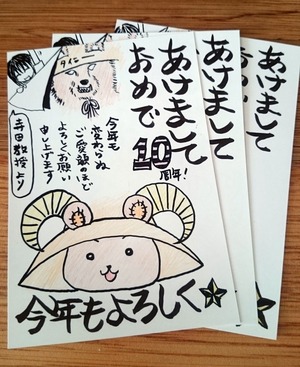 あけまして
おめで
10
周年！
今年も
変わらぬ
ご愛顧のほど
よろしくお願い
申し上げます
寺田教授より
今年もよろしく☆
あけまして
あけまして